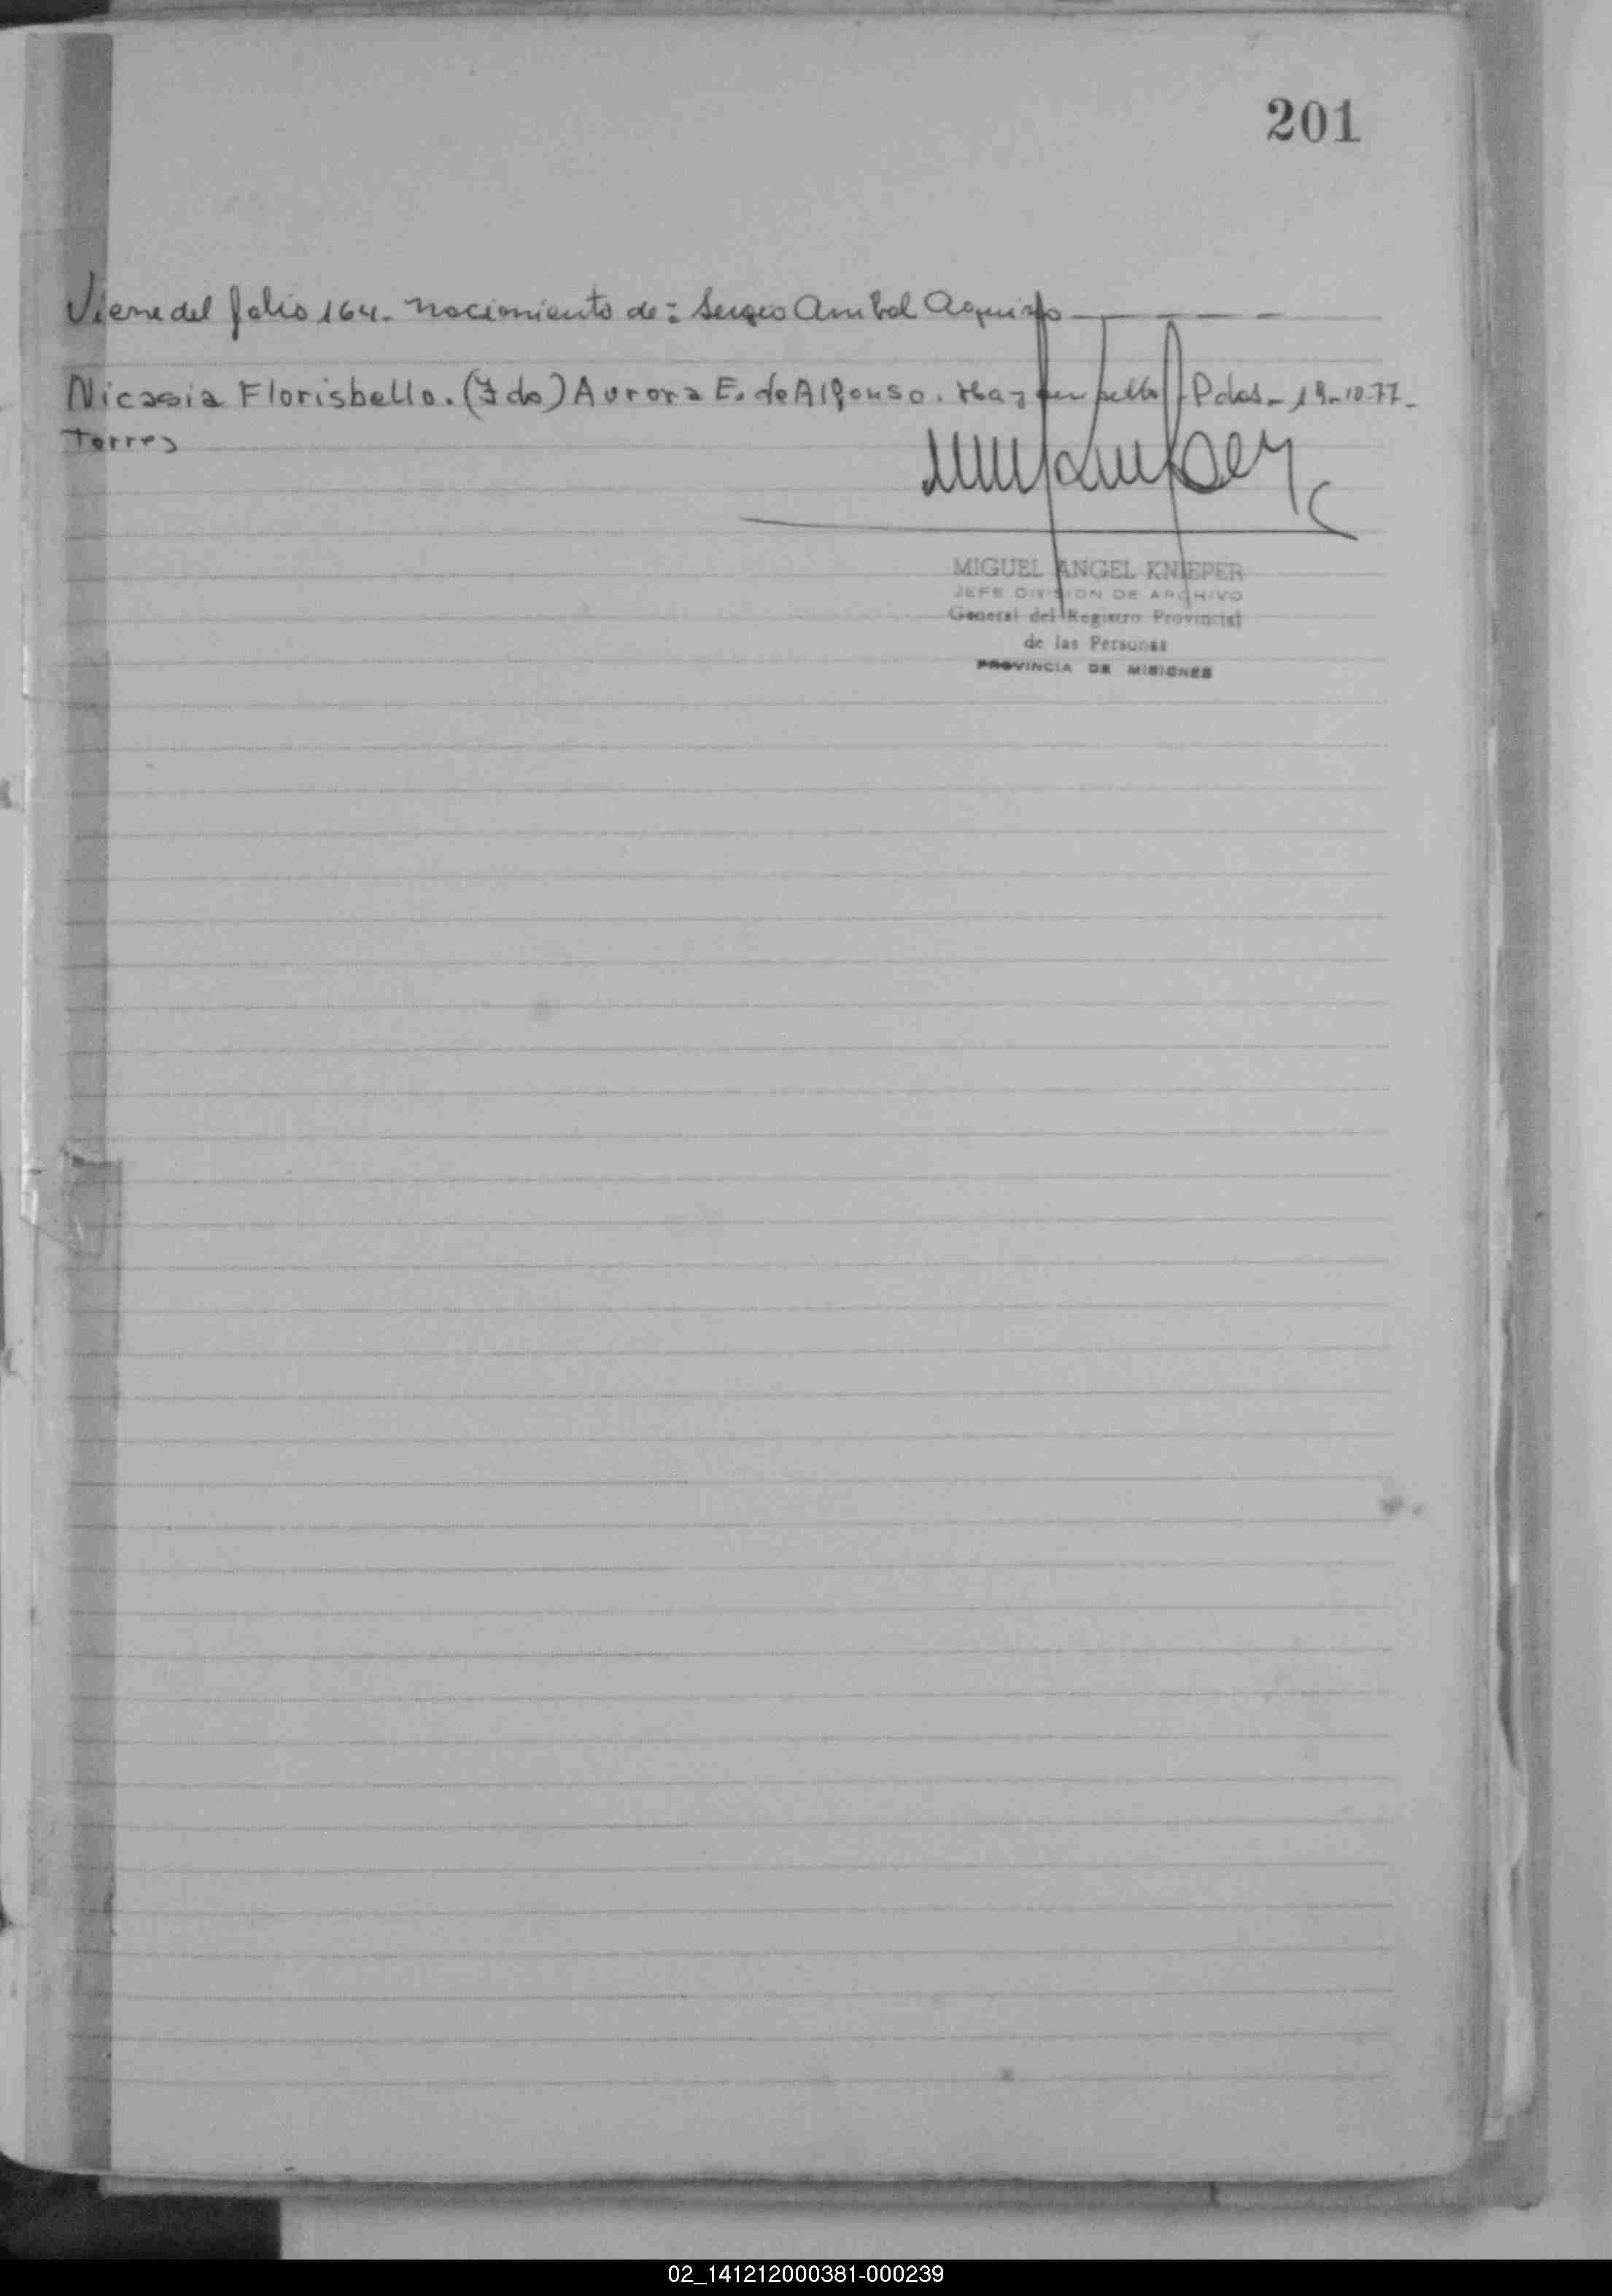 201
Viene del folio 164. Nacimiento de: Sergio Anibal Aquino
Nicasia Florisbello. (Fdo) Aurora E. de Alfonso. Hay un sello. Pdas. 19-10-77.
Torres
MIGUEL ANGEL KNIEPER
JEFE DIVISION DE ARCHIVO
General del Registro Provincial
de las Personas
PROVINCIA DE MISIONES
02_141212000381-000239